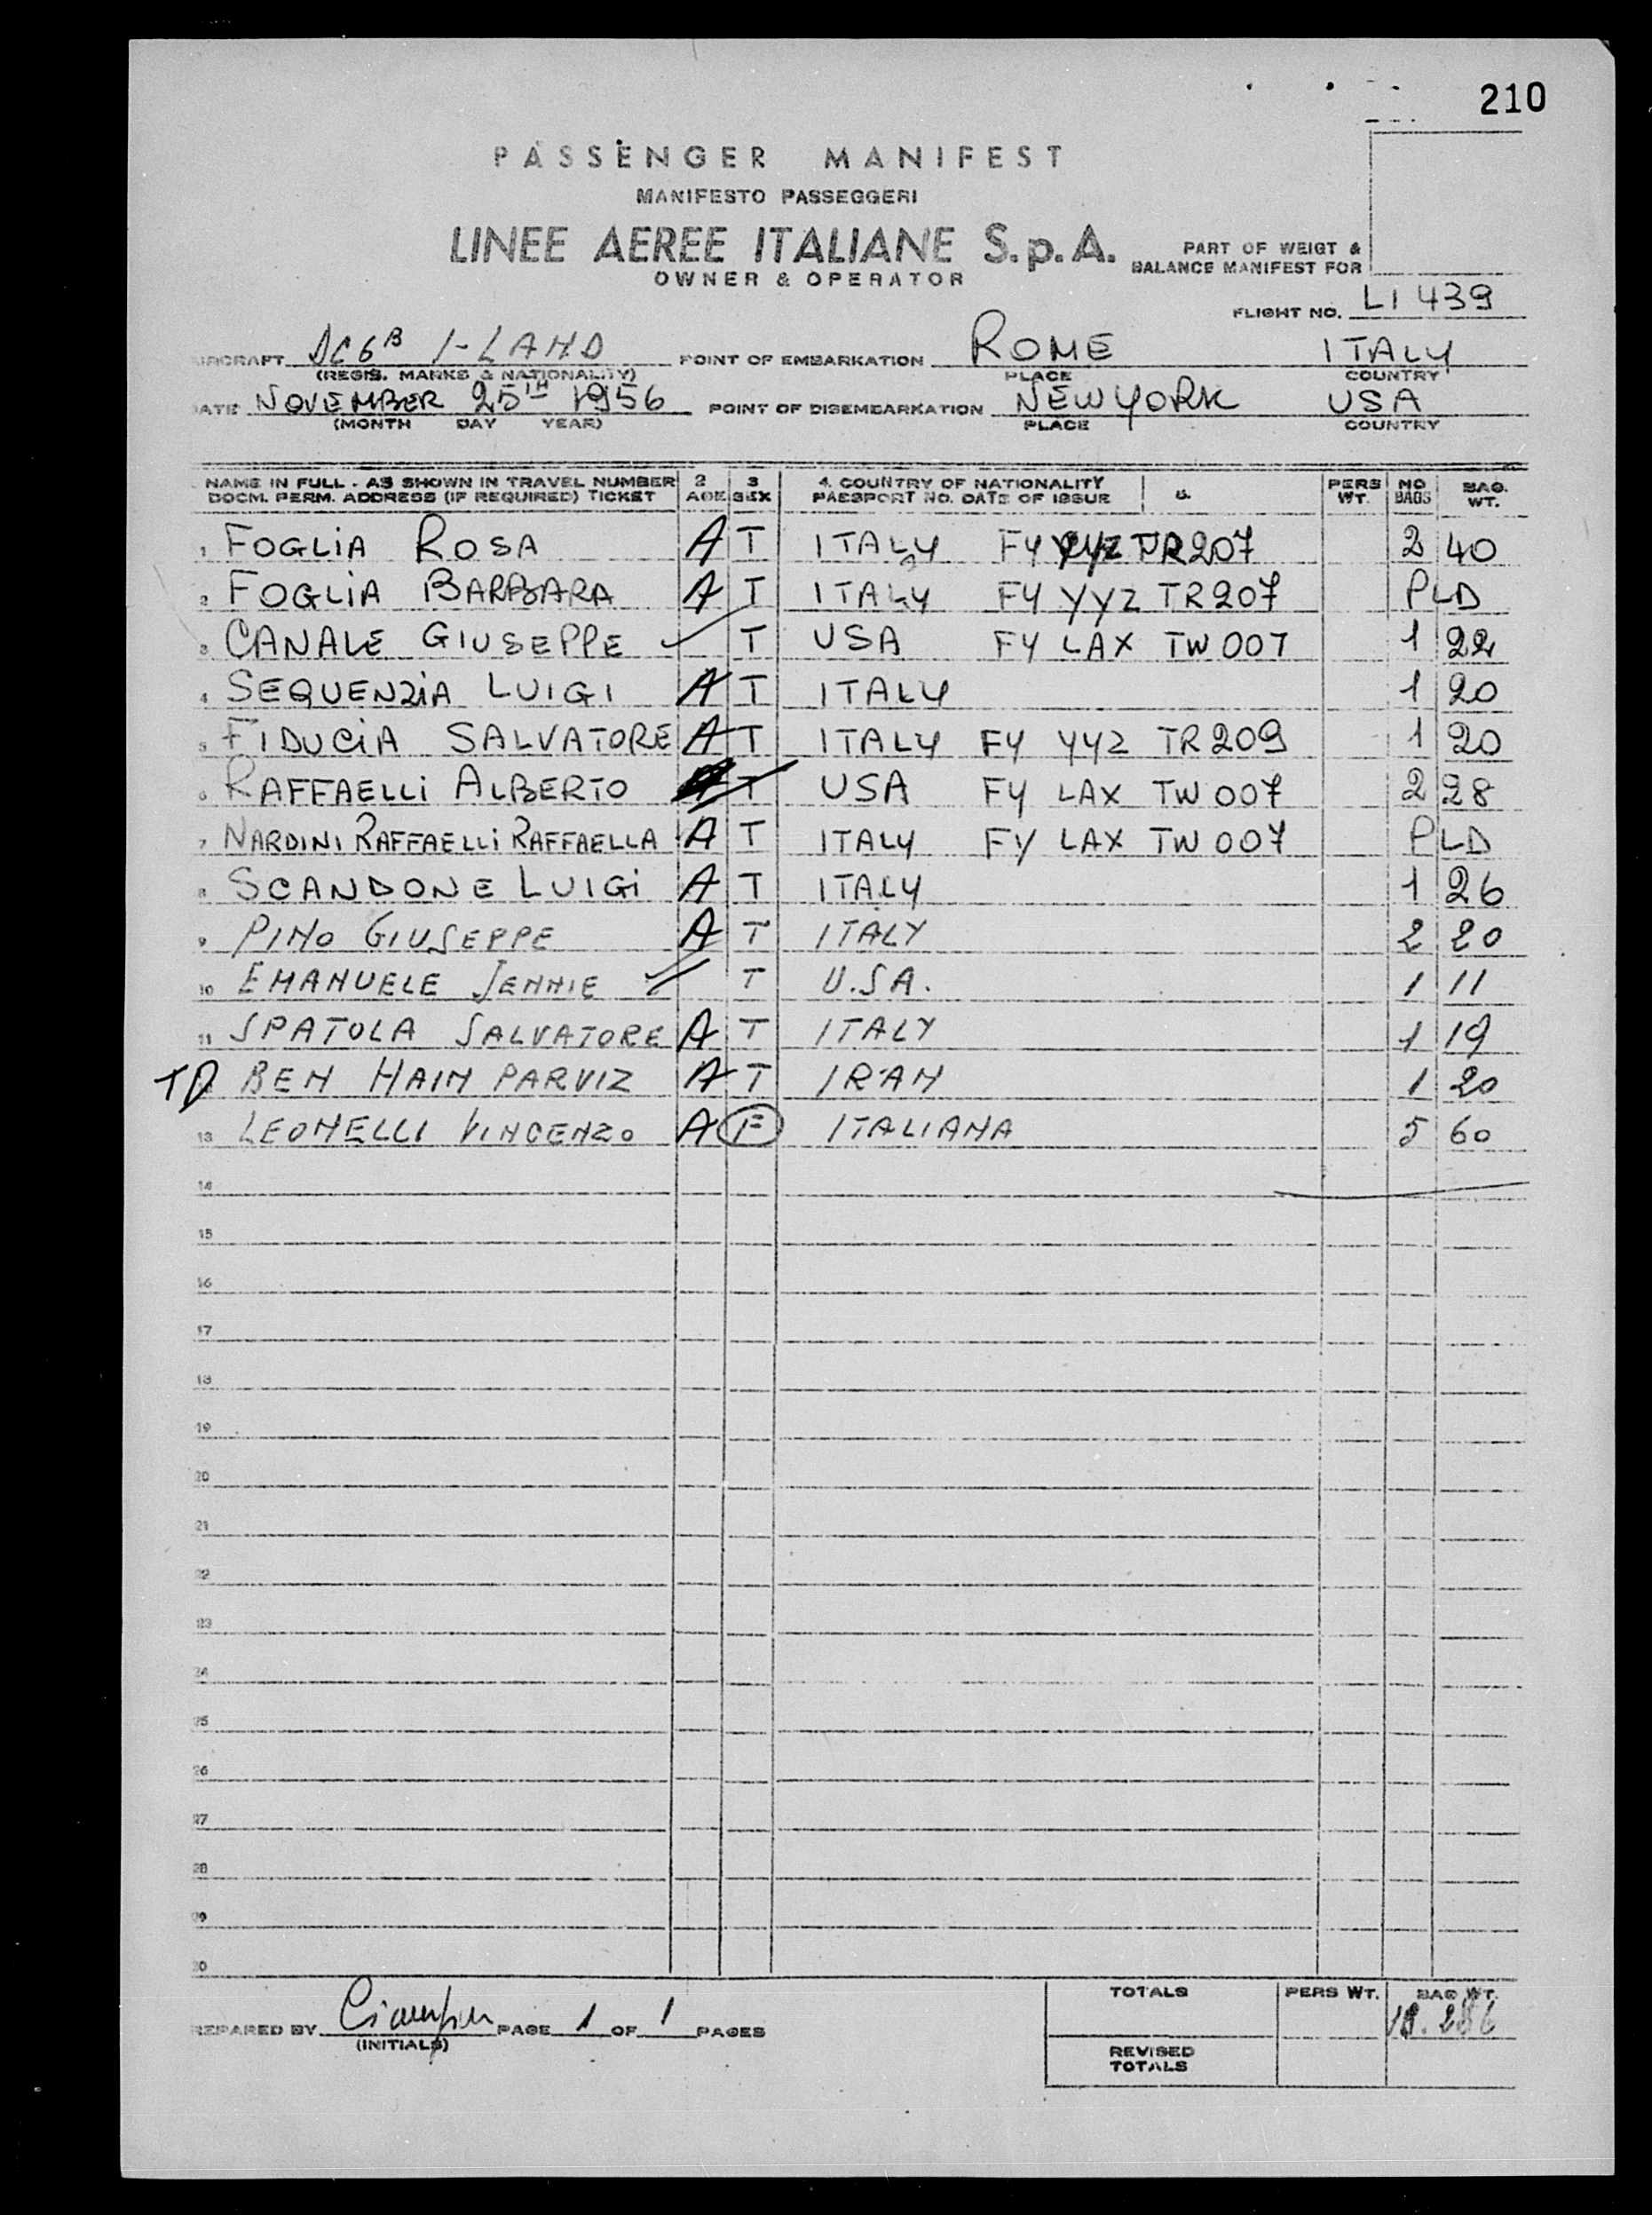 210
PASSENGER MANIFEST
MANIFESTO PASSEGGERI
LINEE AEREE ITALIANE S.p.A.
OWNER & OPERATOR
PART OF WEIGT &
BALANCE MANIFEST FOR
FLIGHT NO. LI 439
AIRCRAFT DC6B I-LAND POINT OF EMBARKATION ROME ITALY
(REGIS. MARKS & NATIONALITY) PLACE COUNTRY
DATE NOVEMBER 25TH 1956 POINT OF DISEMBARKATION NEW YORK USA
(MONTH DAY YEAR) PLACE COUNTRY
NAME IN FULL - AS SHOWN IN TRAVEL NUMBER 2 3 4. COUNTRY OF NATIONALITY PERS NO BAG.
DOCM. PERM. ADDRESS (IF REQUIRED) TICKET AGE SEX PASSPORT NO. DATE OF ISSUE 5. WT. BAGS WT.
1 FOGLIA ROSA A T ITALY FY YYZ TR207 2 40
2 FOGLIA BARBARA A T ITALY FY YYZ TR207 PLD
3 CANALE GIUSEPPE T USA FY LAX TW 007 1 22
4 SEQUENZIA LUIGI A T ITALY 1 20
5 FIDUCIA SALVATORE A T ITALY FY YYZ TR209 1 20
6 RAFFAELLI ALBERTO T USA FY LAX TW 007 2 28
7 NARDINI RAFFAELLI RAFFAELLA A T ITALY FY LAX TW 007 PLD
8 SCANDONE LUIGI A T ITALY 1 26
9 PINO GIUSEPPE A T ITALY 2 20
10 EMANUELE JENNIE T U.S.A. 1 11
11 SPATOLA SALVATORE A T ITALY 1 19
TD BEN HAIM PARVIZ A T IRAN 1 20
13 LEONELLI VINCENZO A F ITALIANA 5 60
14
15
16
17
18
19
20
21
22
23
24
25
26
27
28
29
30
TOTALS PERS WT. BAG WT.
18.286
PREPARED BY PAGE 1 OF 1 PAGES
(INITIALS)
REVISED
TOTALS